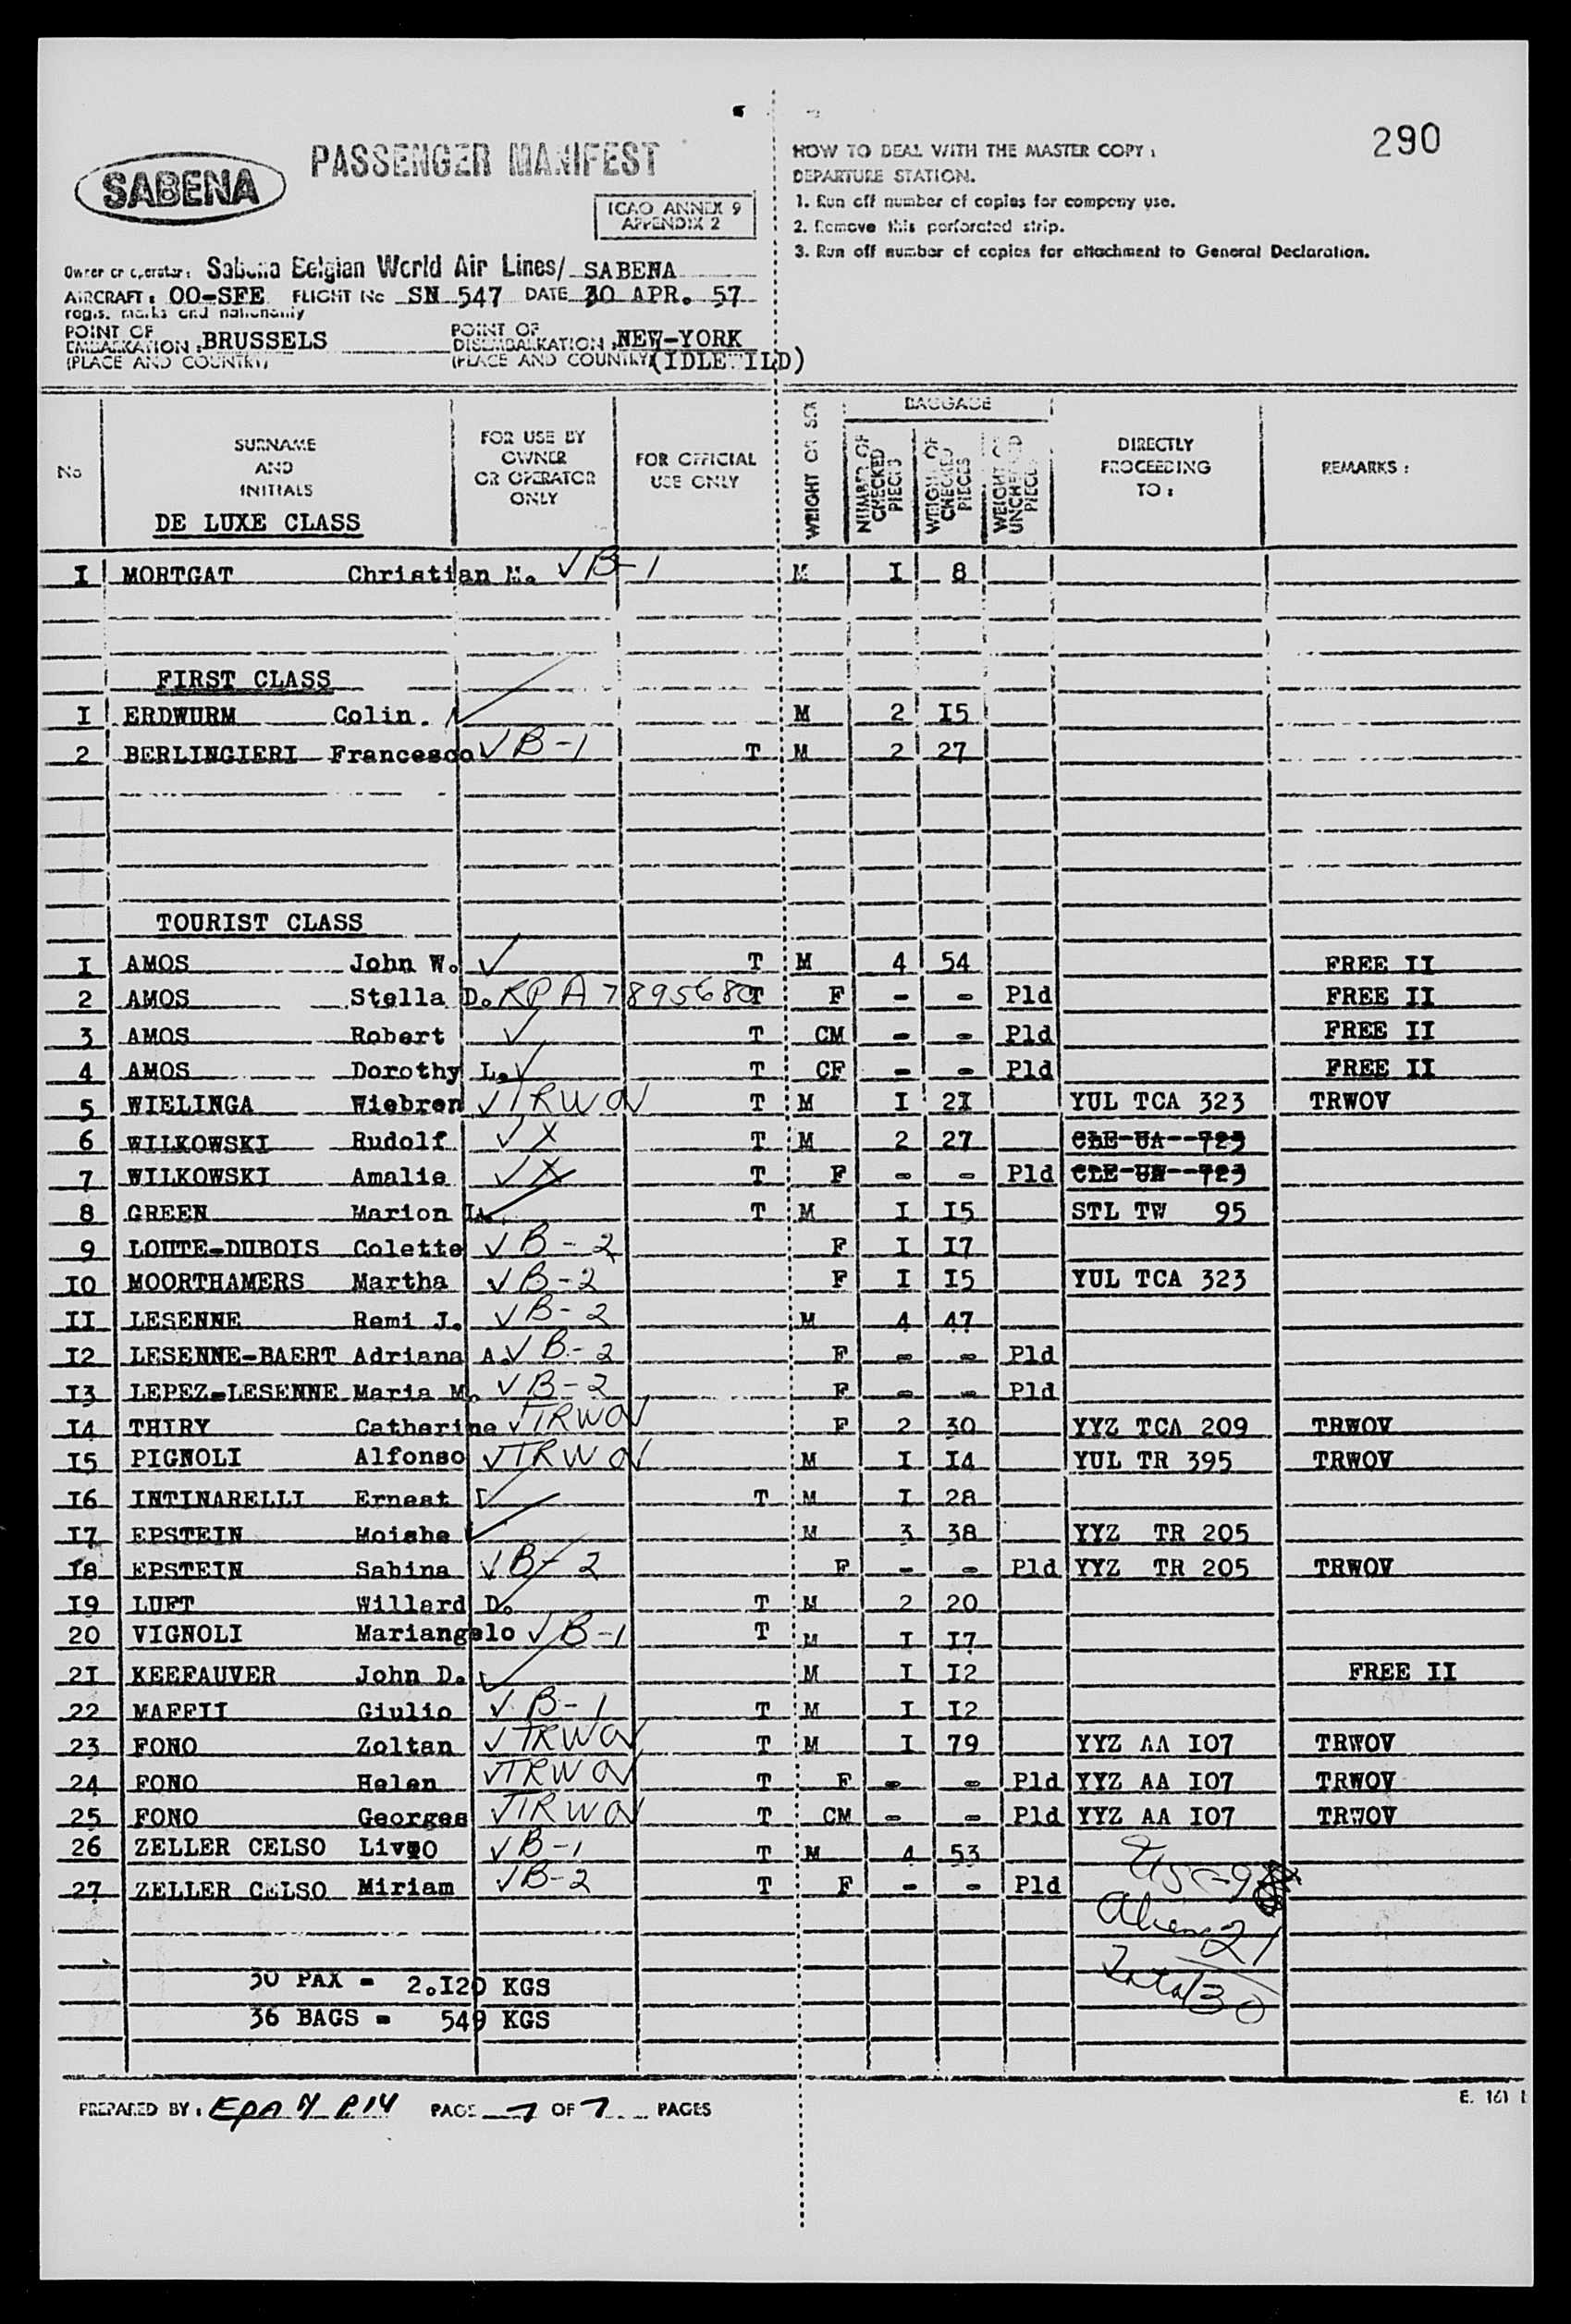 290
SABENA
PASSENGER MANIFEST
ICAO ANNEX 9
APPENDIX 2
HOW TO DEAL WITH THE MASTER COPY :
DEPARTURE STATION.
1. Run off number of copies for company use.
2. Remove this perforated strip.
3. Run off number of copies for attachment to General Declaration.
Owner or operator: Sabena Belgian World Air Lines/ SABENA
AIRCRAFT: OO-SFE FLIGHT No SN 547 DATE 30 APR. 57
regis. marks and nationality
POINT OF EMBARKATION : BRUSSELS POINT OF DISEMBARKATION : NEW-YORK
(PLACE AND COUNTRY) (PLACE AND COUNTRY) (IDLEWILD)
No SURNAME AND INITIALS FOR USE BY OWNER OR OPERATOR ONLY FOR OFFICIAL USE ONLY WEIGHT OR SEX BAGGAGE NUMBER OF CHECKED PIECES WEIGHT OF CHECKED PIECES WEIGHT OF UNCHECKED PIECES DIRECTLY PROCEEDING TO : REMARKS :
DE LUXE CLASS
I MORTGAT Christian M. √ B-1 M I 8
FIRST CLASS
I ERDWURM Colin. M 2 I5
2 BERLINGIERI Francesco √ B-1 T M 2 27
TOURIST CLASS
I AMOS John W. √ T M 4 54 FREE II
2 AMOS Stella D. RPA 7895680 T F - - Pld FREE II
3 AMOS Robert √ T CM - - Pld FREE II
4 AMOS Dorothy L. √ T CF - - Pld FREE II
5 WIELINGA Wiebren √ TRWOV T M I 2I YUL TCA 323 TRWOV
6 WILKOWSKI Rudolf √ X T M 2 27 CLE-UA--723
7 WILKOWSKI Amalie √ X T F - - Pld CLE-UA--723
8 GREEN Marion L. T M I I5 STL TW 95
9 LOUTE-DUBOIS Colette √ B-2 F I I7
IO MOORTHAMERS Martha √ B-2 F I I5 YUL TCA 323
II LESENNE Remi J. √ B-2 M 4 47
I2 LESENNE-BAERT Adriana A. √ B-2 F - - Pld
I3 LEPEZ-LESENNE Maria M. √ B-2 F - - Pld
I4 THIRY Catherine √ TRWOV F 2 30 YYZ TCA 209 TRWOV
I5 PIGNOLI Alfonso √ TRWOV M I I4 YUL TR 395 TRWOV
I6 INTINARELLI Ernest I √ T M I 28
I7 EPSTEIN Moishe √ M 3 38 YYZ TR 205
I8 EPSTEIN Sabina √ B-2 F - - Pld YYZ TR 205 TRWOV
I9 LUFT Willard D. T M 2 20
20 VIGNOLI Mariangelo √ B-1 T M I I7
2I KEEFAUVER John D. √ M I I2 FREE II
22 MAFFII Giulio √ B-1 T M I I2
23 FONO Zoltan √ TRWOV T M I 79 YYZ AA IO7 TRWOV
24 FONO Helen √ TRWOV T F - - Pld YYZ AA IO7 TRWOV
25 FONO Georges √ TRWOV T CM - - Pld YYZ AA IO7 TRWOV
26 ZELLER CELSO Livio √ B-1 T M 4 53
27 ZELLER CELSO Miriam √ B-2 T F - - Pld
USC-9
Aliens 21
Total 30
30 PAX = 2.I20 KGS
36 BAGS = 549 KGS
PREPARED BY : PAGE 1 OF 1 PAGES
E. 161 I